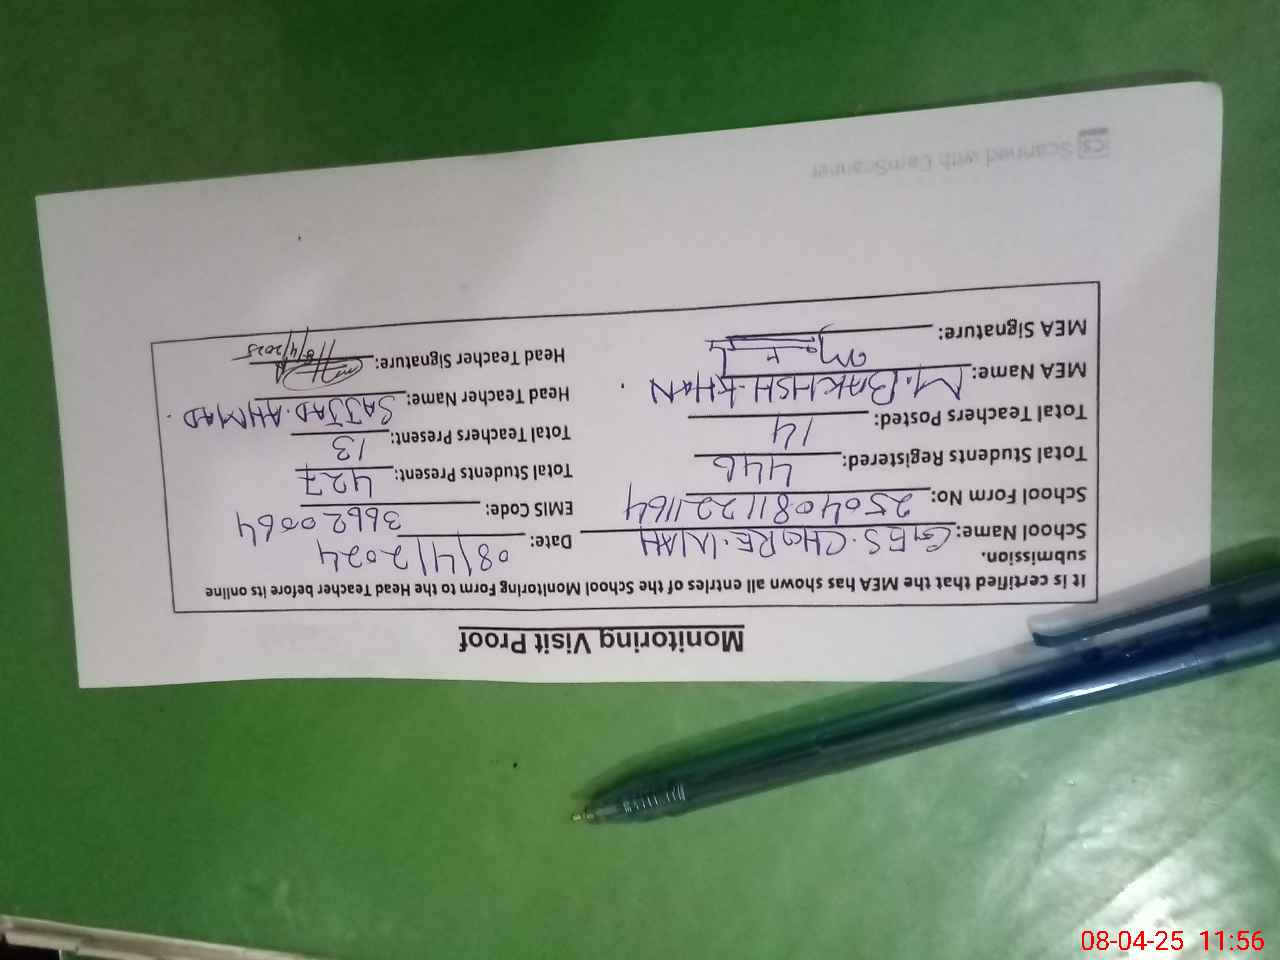 Monitoring Visit Proof
It is certified that the MEA has shown all entries of the School Monitoring Form to the Head Teacher before its online submission.
School Name: GES. CHORE. WAH Date: 08/4/2024
School Form No: 2504081122 1164 EMIS Code: 36620064
Total Students Registered: 446 Total Students Present: 427
Total Teachers Posted: 14 Total Teachers Present: 13
MEA Name: M. BAKHSH. KHAN Head Teacher Name: SAJJAD. AHMAD.
MEA Signature: Head Teacher Signature: 8/4/2025
CS Scanned with CamScanner
08-04-25 11:56